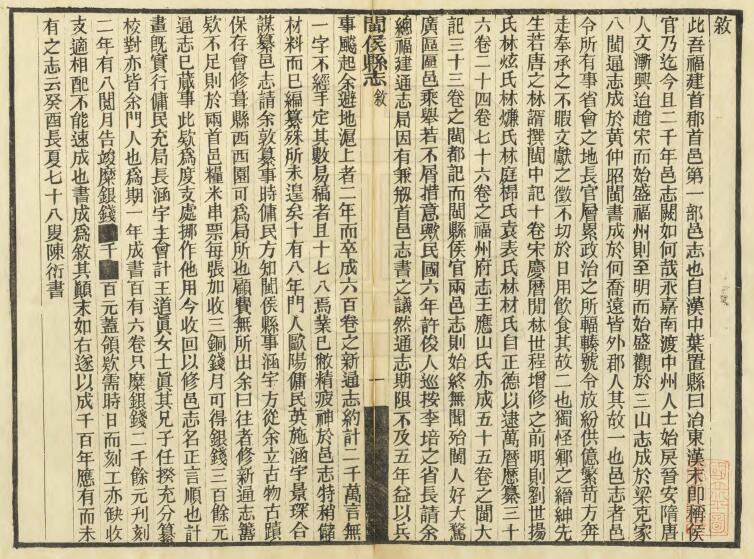 敘
此吾福建首郡首邑第一部邑志也自漢中葉置縣曰冶東漢末即稱侯
官乃迄今且二千年邑志闕如何哉永嘉南渡中州人士始戾晉安隋唐
人文漸興迨趙宋而始盛福州則至明而始盛觀於三山志成於梁克家
八閩通志成於黃仲昭閩書成於何喬遠皆外郡人其故一也邑志者邑
令所有事省會之地長官層累政治之所輻輳號令放紛供億繁苛方奔
走奉承之不暇文獻之徵不切於日用飲食其故二也獨怪鄉之縉紳先
生若唐之林諝撰閩中記十卷宋慶曆閒林世程增修之前明則劉世揚
氏林炫氏林燫氏林庭㭿氏袁表氏林材氏自正德以逮萬曆歷纂三十
六卷二十四卷七十六卷之福州府志王應山氏亦成五十五卷之閩大
記三十三卷之閩都記而閩縣侯官兩邑志則始終無聞殆閩人好大騖
廣區區邑乘舉若不屑措意歟民國六年許俊人巡按李培之省長請余
總福建通志局因有兼刱首邑志書之議然通志期限不及五年益以兵
閩侯縣志
敘
一
事颷起余避地滬上者二年而卒成六百卷之新通志約計二千萬言無
一字不經手定其數易稿者且十七八焉業已敝精疲神於邑志特稍儲
材料而已編纂殊所未遑矣十有八年門人歐陽傭民英施涵宇景琛合
謀纂邑志請余敦纂事時傭民方知閩侯縣事涵宇方從余立古物古蹟
保存會修葺縣西西園可爲局所也顧費無所出余曰往者修新通志籌
欵不足則於兩首邑糧米串票每張加收三銅錢月可得銀錢三百餘元
通志已蕆事此欵爲度支處挪作他用今收回以修邑志名正言順也計
畫旣實行傭民充局長涵宇主會計王道眞女士眞其兄子任揆充分纂
校對亦皆余門人也爲期一年成書百有六卷只糜銀錢二千餘元刋刻
二年有八閱月告竣糜銀錢千百元蓋領欵需時日而刻工亦缺收
支適相配不能速成也書成爲敘其顚末如右遂以成千百年應有而未
有之志云癸酉長夏七十八叟陳衍書